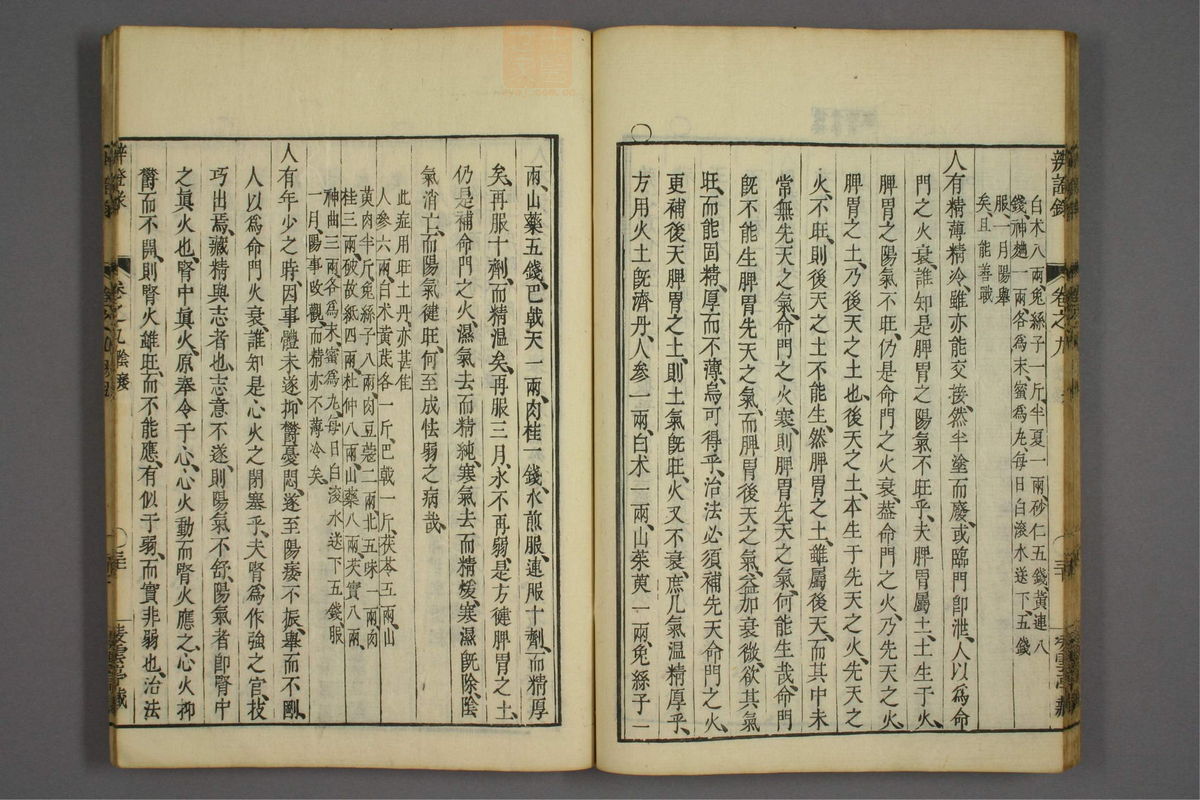 辨證錄
卷之九
白朮八兩、兔絲子一斤、半夏一兩、砂仁五錢、黃連八
錢、神麯一兩、各為末、蜜為丸、每日白滾水送下、五錢
服、一月陽舉
矣、且能善戰
人有精薄精冷、雖亦能交接、然半塗而廢、或臨門即泄、人以為命
門之火衰、誰知是脾胃之陽氣不旺乎、夫脾胃屬土、土生于火、
脾胃之陽氣不旺、仍是命門之火衰、葢命門之火、乃先天之火、
脾胃之土、乃後天之土也、後天之土、本生于先天之火、先天之
火、不旺、則後天之土不能生、然脾胃之土、雖屬後天、而其中未
常無先天之氣、命門之火寒、則脾胃先天之氣、何能生哉、命門
既不能生脾胃先天之氣、而脾胃後天之氣、益加衰微、欲其氣
旺、而能固精、厚而不薄、烏可得乎、治法必須補先天命門之火、
更補後天脾胃之土、則土氣既旺、火又不衰、庶几氣溫精厚乎、
方用火土既濟丹、人參一兩、白朮一兩、山茱萸一兩、兔絲子一
兩、山藥五錢、巴戟天一兩、肉桂一錢、水煎服、連服十劑、而精厚
矣、再服十劑、而精溫矣、再服三月、永不再弱、是方健脾胃之土、
仍是補命門之火、濕氣去而精純、寒氣去而精煖、寒濕既除、陰
氣消亡、而陽氣健旺、何至成怯弱之病哉、
此症用旺土丹、亦甚佳
人參六兩、白朮黃芪各一斤、巴戟一斤、茯苓五兩、山
萸肉半斤、兔絲子八兩、肉豆蔻二兩、北五味一兩、肉
桂三兩、破故紙四兩、杜仲八兩、山藥八兩、芡實八兩、
神曲三兩、各為末、蜜為丸、每日白滾水送下五錢、服
一月、陽事改觀、而精亦不薄冷矣、
人有年少之時、因事體未遂、抑鬱憂悶、遂至陽痿不振、舉而不剛、
人以為命門火衰、誰知是心火之閉塞乎、夫腎為作強之官、技
巧出焉、藏精與志者也、志意不遂、則陽氣不舒、陽氣者即腎中
之真火也、腎中真火、原奉令于心、心火動而腎火應之、心火抑
鬱而不開、則腎火雖旺、而不能應、有似于弱、而實非弱也、治法
辨證錄
卷之九陰痿